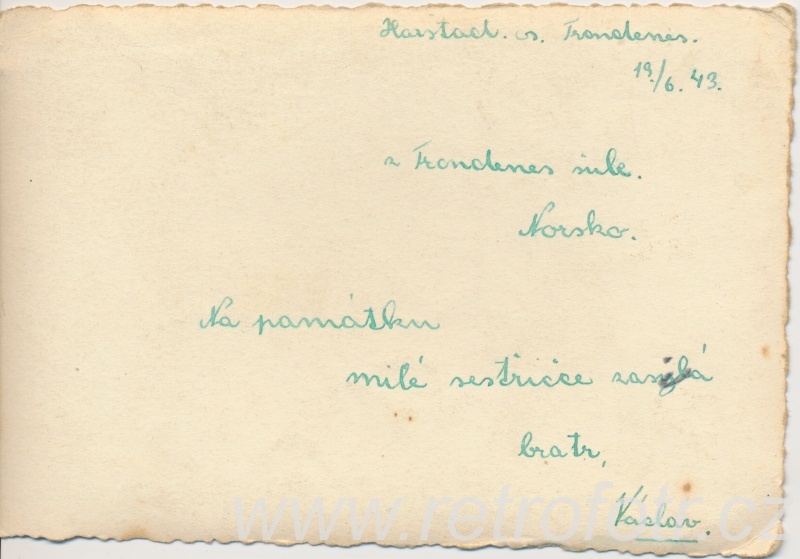 Harstad. os. Trondenes.
19/6. 43.
z Trondenes sule.
Norsko.
Na památku
milé sestřičce zasylá
bratr,
Václav.
www.retrofotr.cz